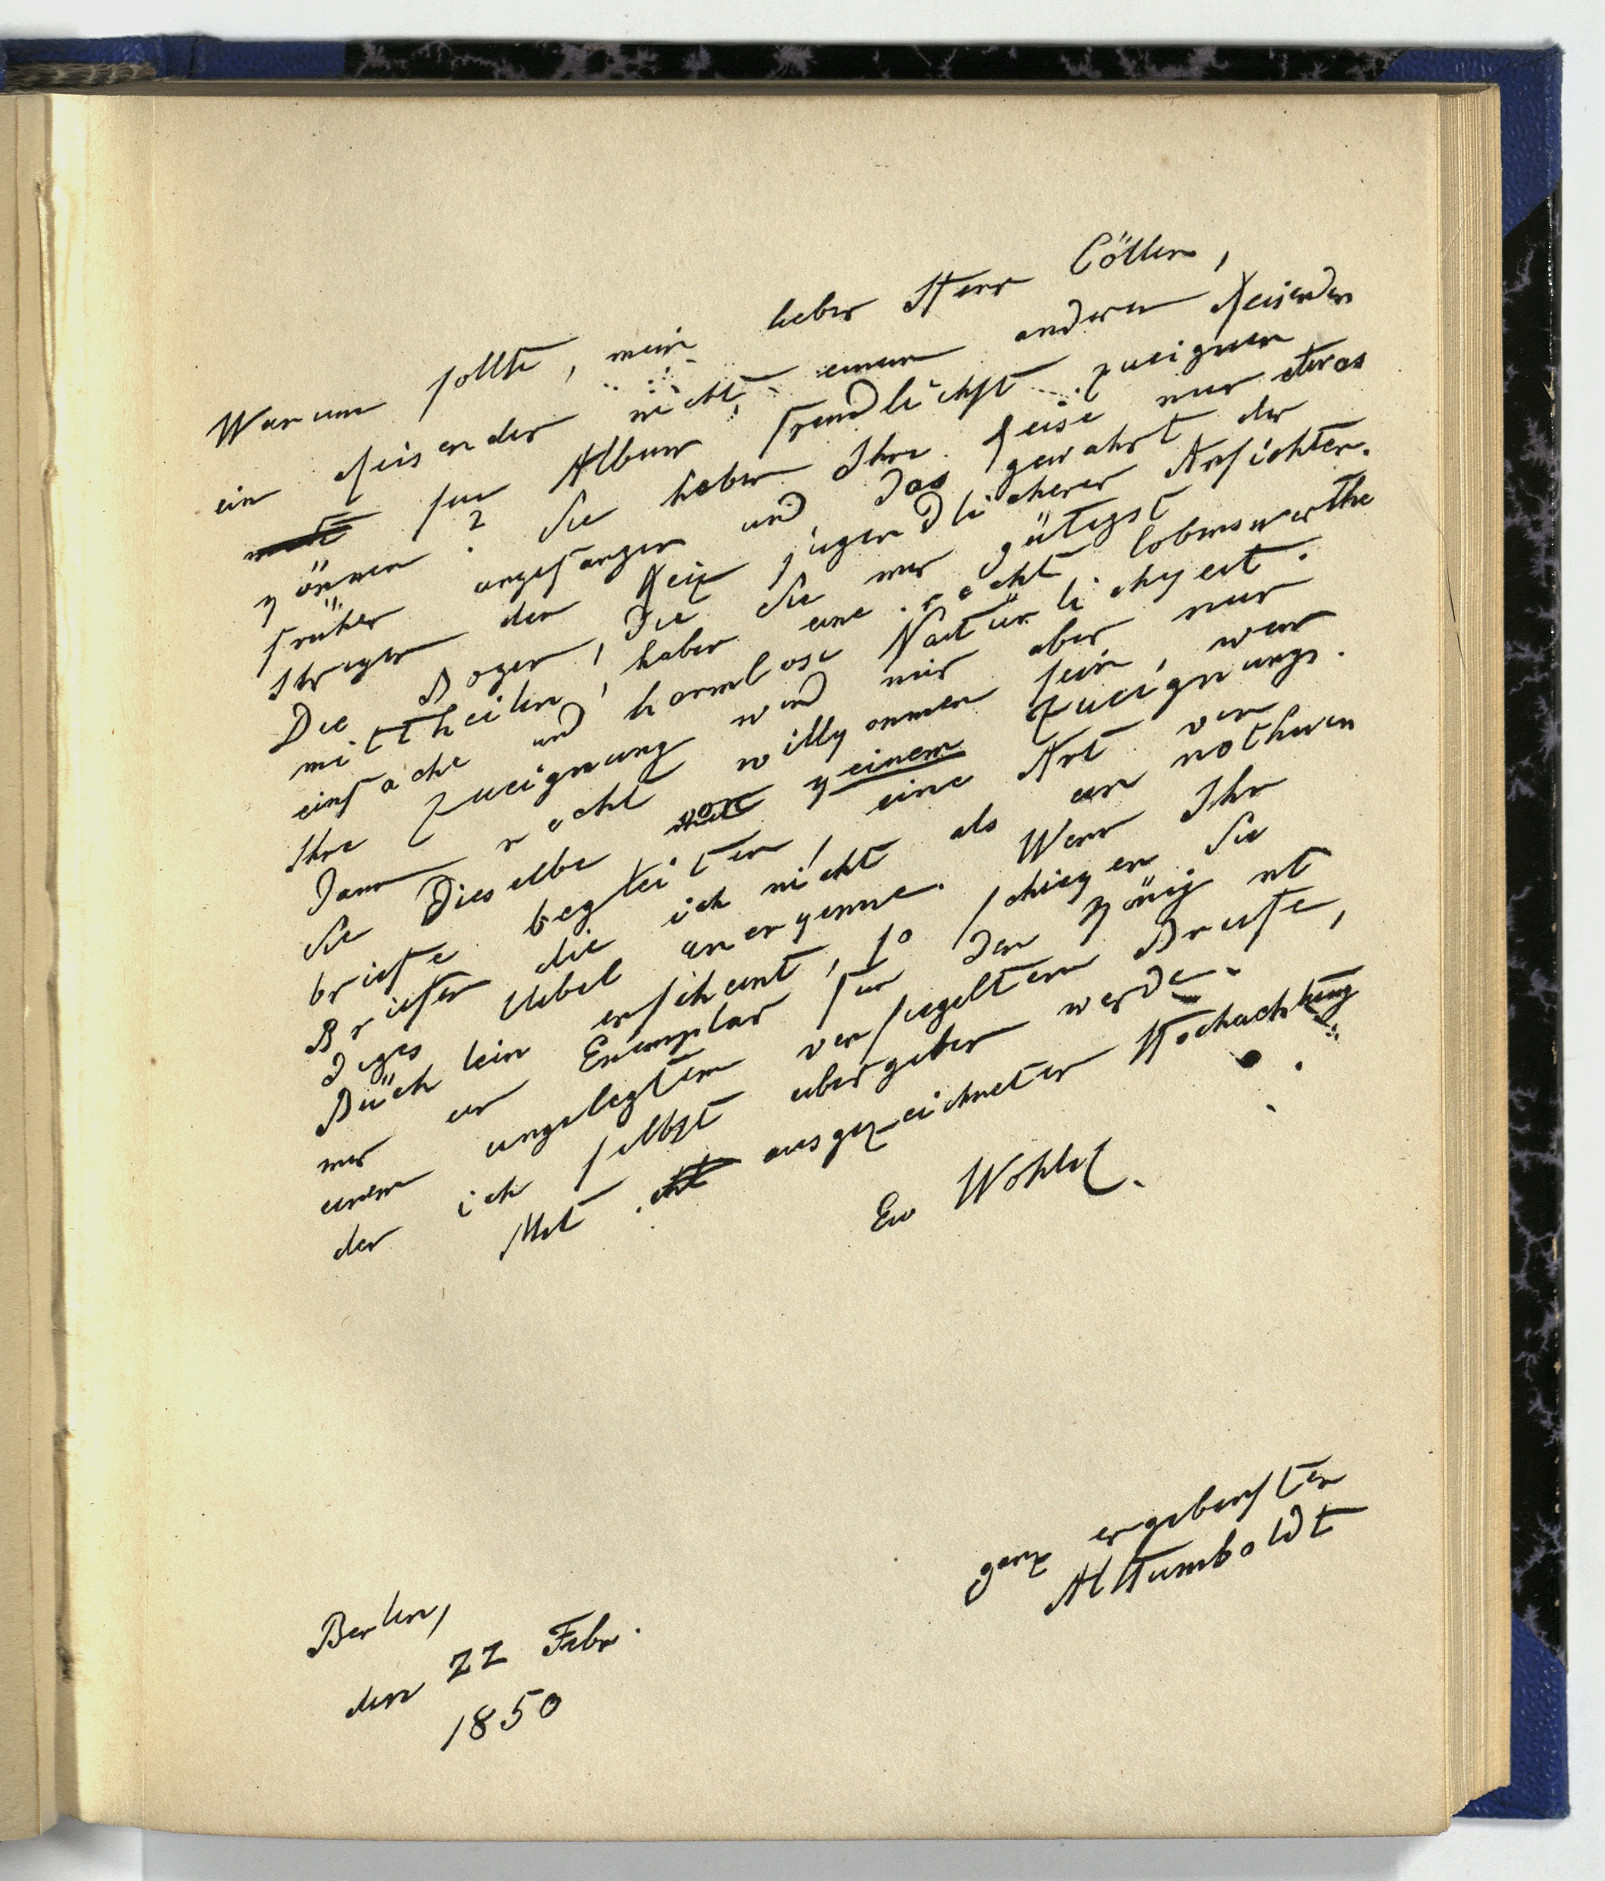 Warum sollte, mein lieber Herr Cöller,
ein Reisender nicht einem anderen Reisenden
sein Album freundlichst zueignen
können? Sie haben Ihre Reise nur etwas
früher angefangen und das gewährt der
Strenge den Reiz jugendlicherer Ansichten.
Die Bogen, die Sie mir gütigst
mittheilen, haben eine recht lobenswerthe
einfache und harmlose Natürlichkeit.
Ihre Zueignung wird mir aber nur
dann recht willkommen sein, wenn
Sie Dieselbe von keinem Zueignungs-
briefe begleiten, eine Art von
Briefen die ich nicht als ein nothwen
diges Uebel anerkenne. Wenn Ihr
Büchlein erscheint, so schicken Sie
mir ein Exemplar für den König mit
einem angelegten versiegelten Briefe,
der ich selbst übergeben werde.
Mit ausgezeichneter Hochachtung
Ew Wohlg.
ganz ergebenster
AlHumboldt
Berlin,
den 22 Febr.
1850